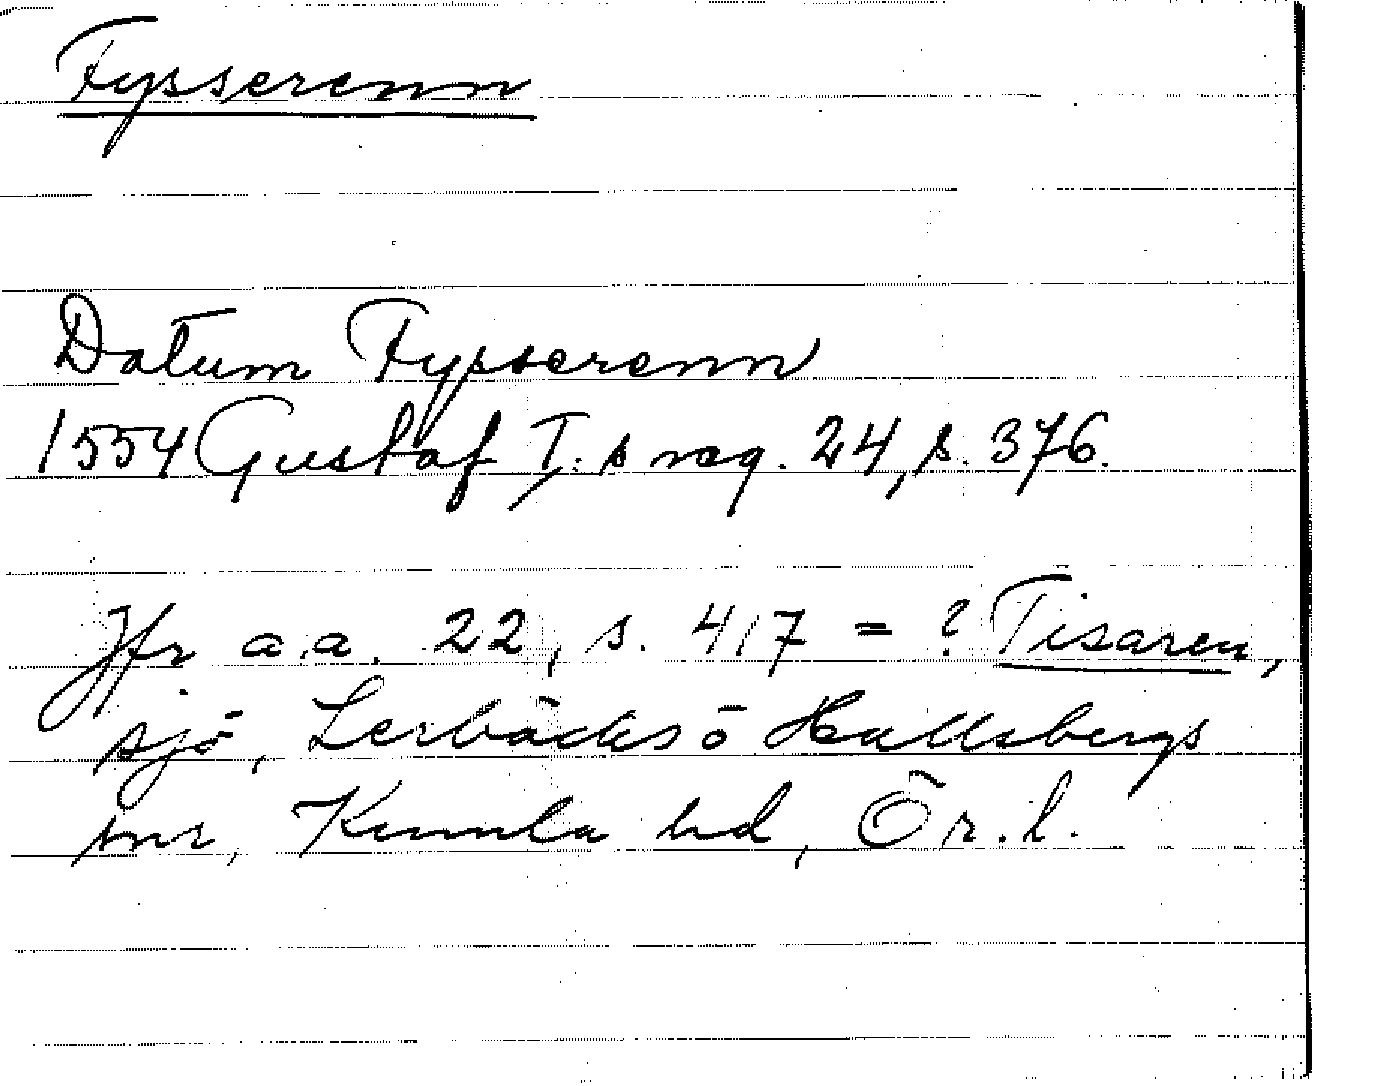 Fysserenn
Datum Fysserenn
1554 Gustaf I:s reg. 24, s. 376.
Jfr a.a. 22, s. 417 = ? Tisaren,
sjö, Lerbäcks ö Hallsbergs
snr, Kumla hd, Ör. l.